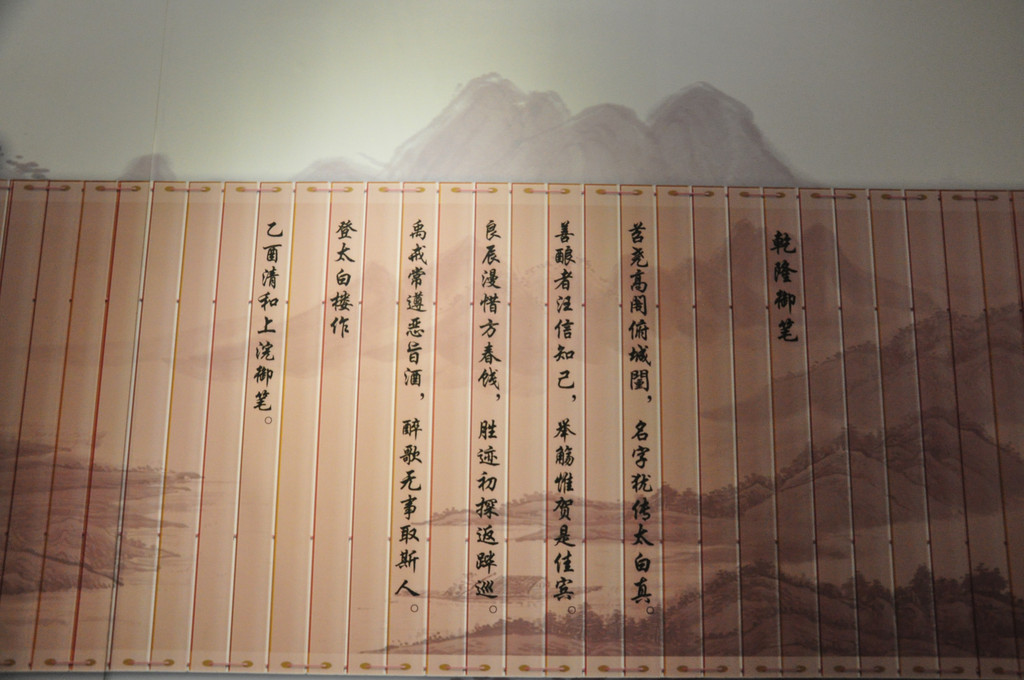 乾隆御笔
苕尧高阁俯城闉，名字犹传太白真。
善酿者汪信知己，举觞惟贺是佳宾。
良辰漫惜方春饯，胜迹初探返跸巡。
禹戒常遵恶旨酒，醉歌无事取斯人。
登太白楼作
乙酉清和上浣御笔。